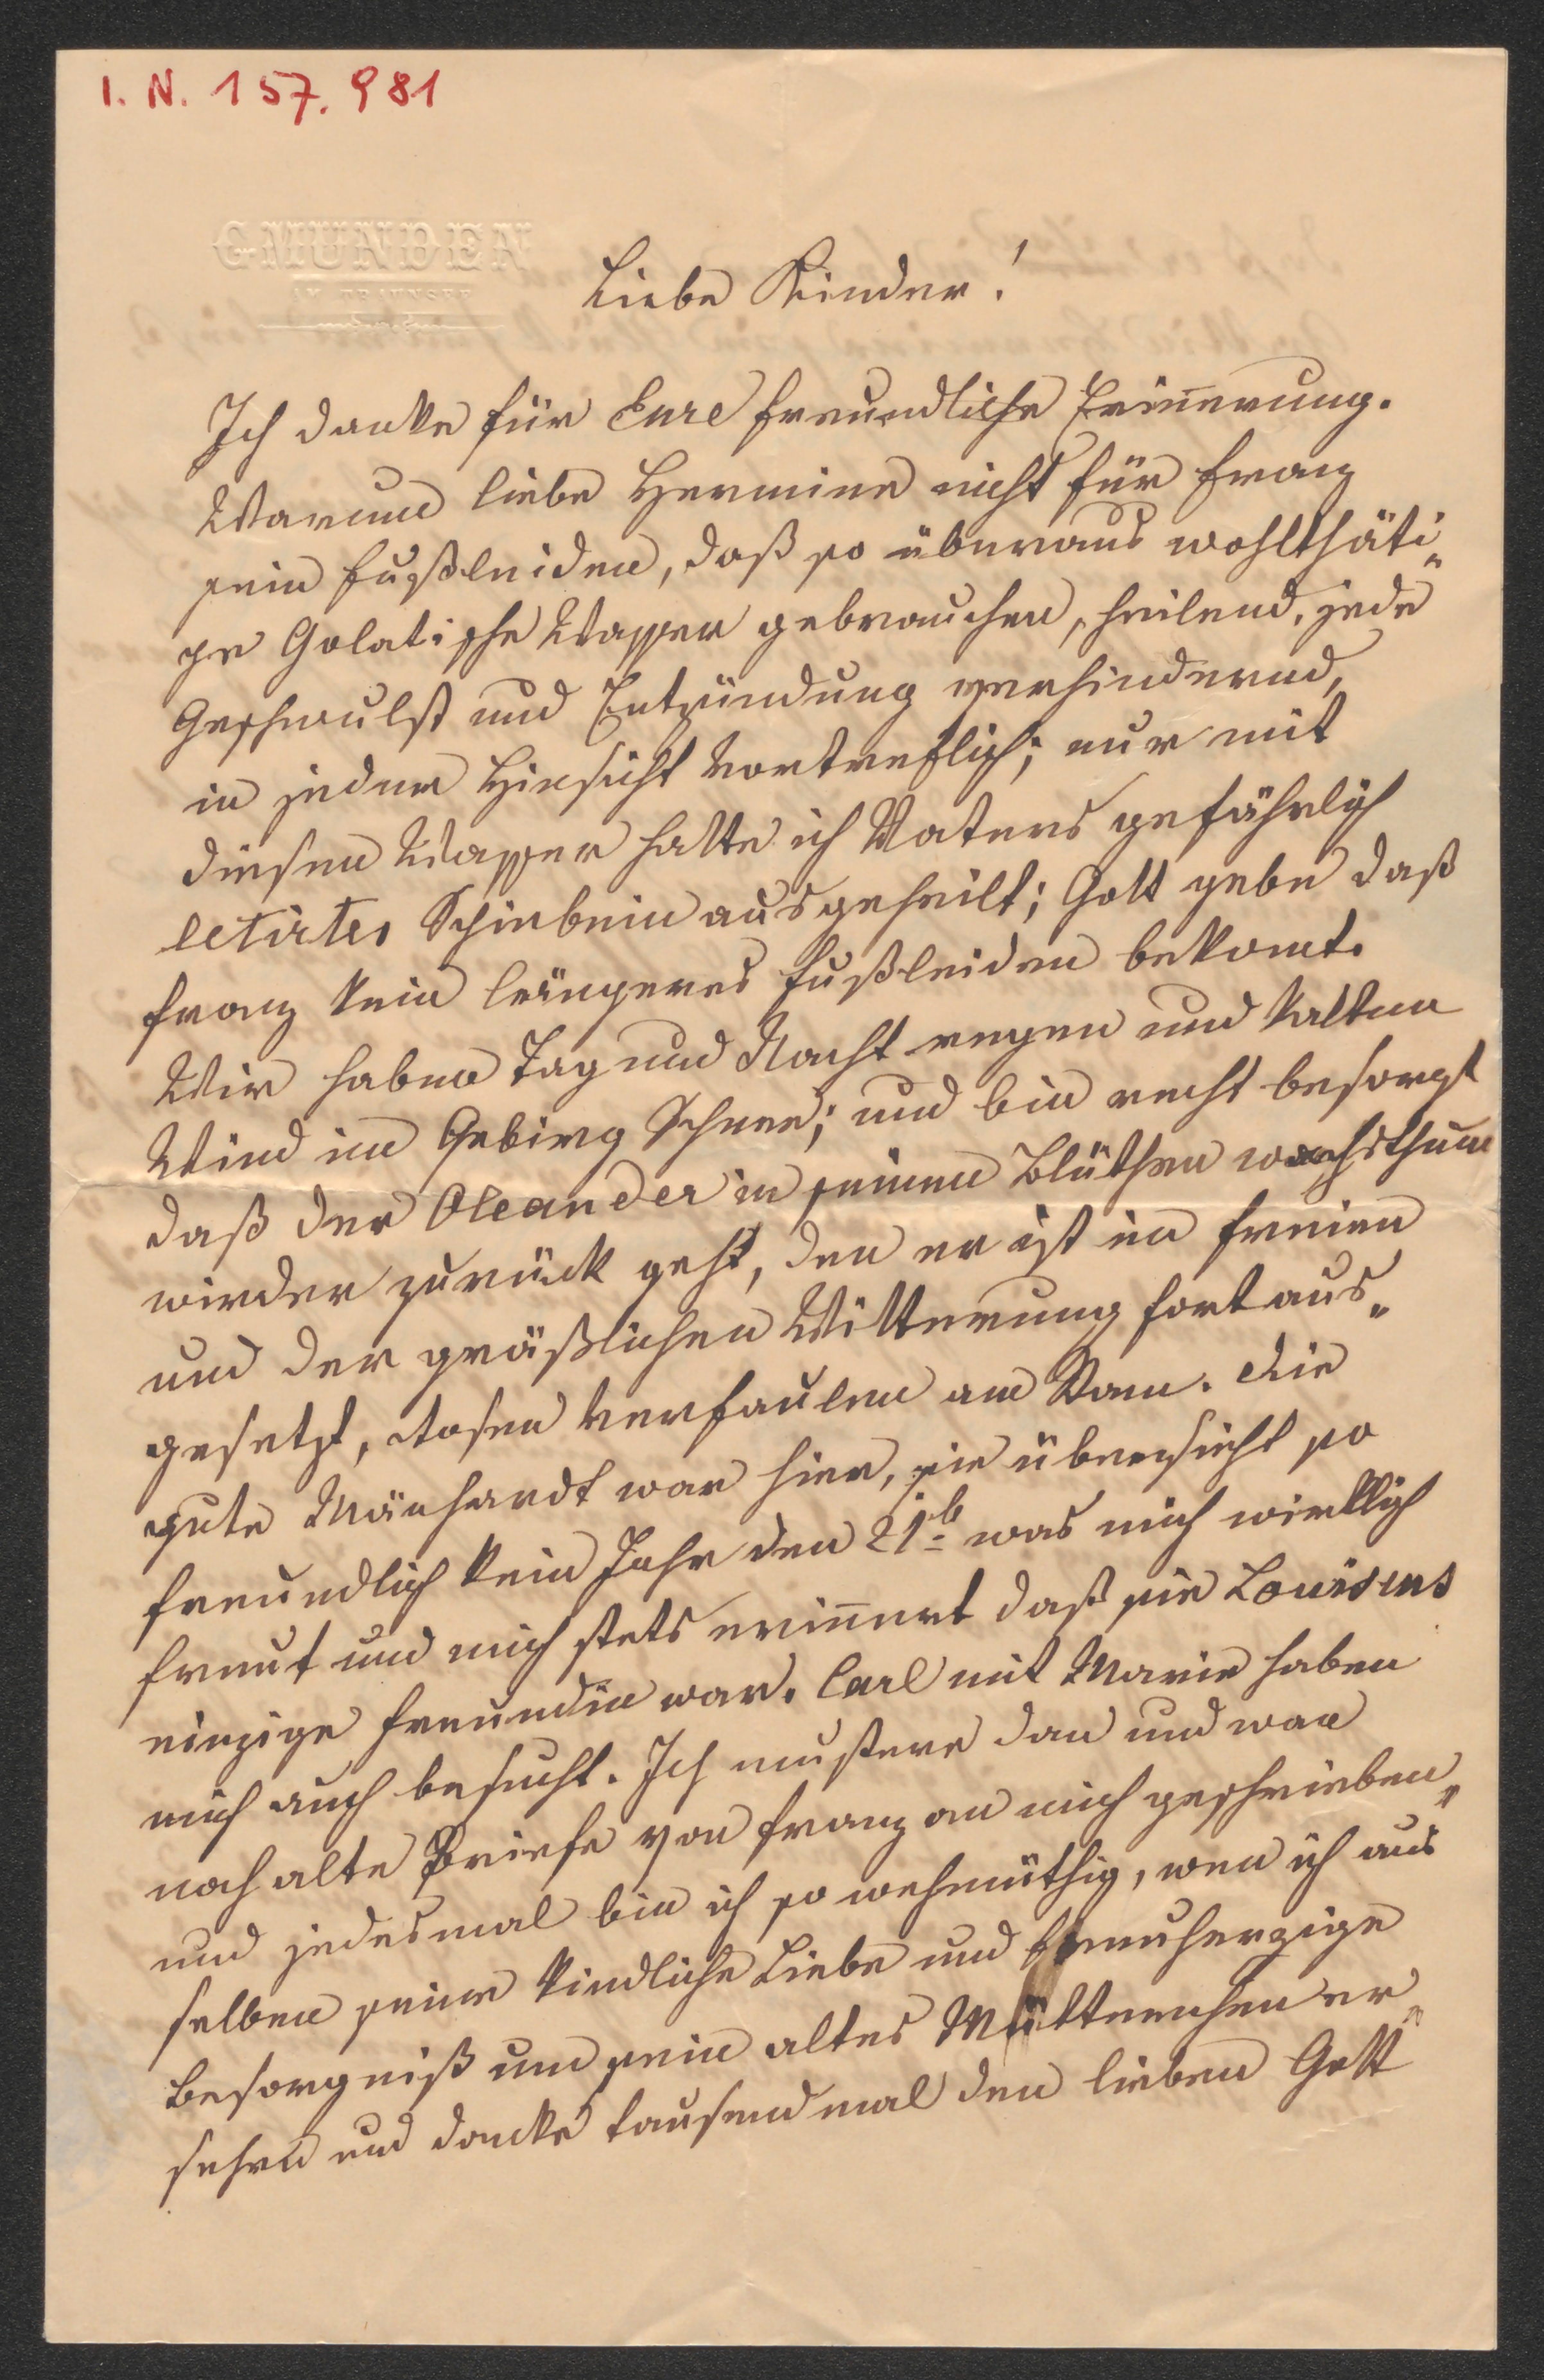 I. N. 157.981
GMUNDEN
AM TRAUNSEE
Liebe Kinder!
Ich danke für Eure freundliche Erin̄erung.
Warum liebe Hermine nicht für Franz
sein Fußleiden, daß so überaus wohlthäti„
ge Golatische Wasser gebrauchen, heilend, jede
Geschwulst und Entzündung verhindernd,
in jeder Hinsicht vortreflich; nur mit
diesen Wasser hatte ich Vaters gefährlich
letirtes Schinbein ausgeheilt; Gott gebe daß
Franz kein längeres Fußleiden bekomt.
Wir haben Tag und Nacht regen und kalten
Wind im Gebirg Schnee; und bin recht besorgt
daß der Oleander in seinen Blüthen wachsthum
wieder zurück geht, den er ist im freien
und der gräßlichen Witterung fort aus„
gesetzt, Rosen verfaulen am Stam. Die
gute Mänhardt war hier, sie übersieht so
freundlich kein Jahr den 21t was mich wirklich
freut und mich stets erin̄ert daß sie Louisens
einzige Freundin war. Carl mit Marie haben
mich auch besucht. Ich mustere dan und wan
noch alte Briefe von Franz an mich geschrieben„
und jedesmal bin ich so wehmüthig, wen ich aus
selben seine kindliche Liebe und treuherzige
Besorgniß um sein altes Mütterchen er„
sehen und danke tausendmal den lieben Gott